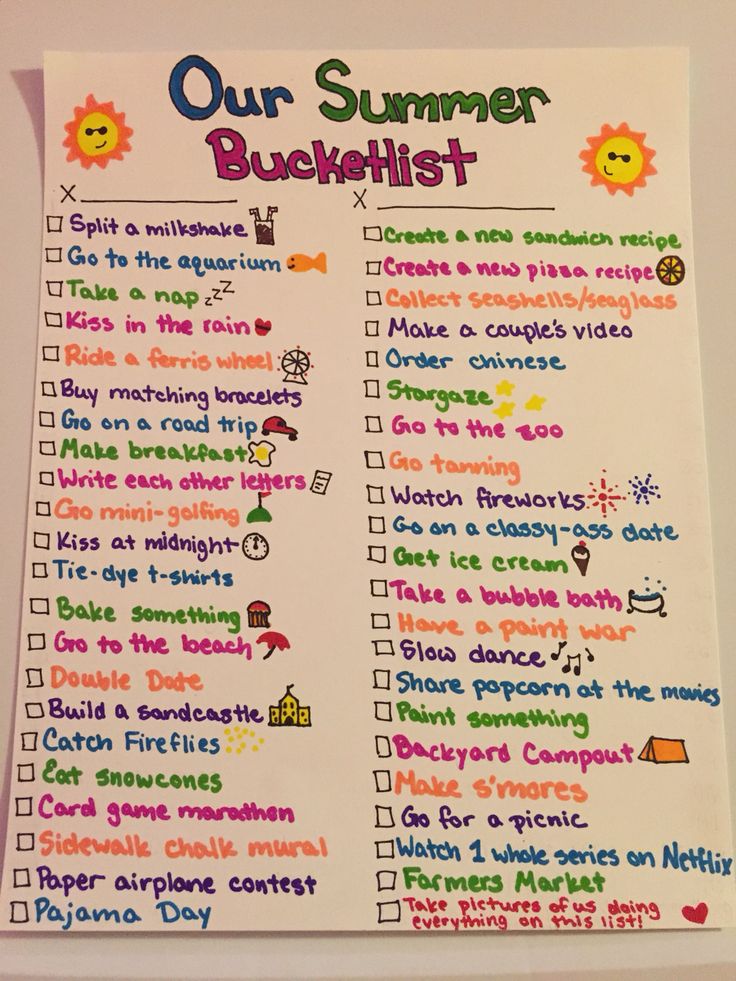 Our Summer
Bucketlist
X
X
Split a milkshake
Go to the aquarium
Take a nap zzZ
Kiss in the rain
Ride a ferris wheel
Buy matching bracelets
Go on a road trip
Make breakfast
Write each other letters
Go mini-golfing
Kiss at midnight
Tie-dye t-shirts
Bake something
Go to the beach
Double Date
Build a sandcastle
Catch Fireflies
Eat snowcones
Card game marathon
Sidewalk chalk mural
Paper airplane contest
Pajama Day
Create a new sandwich recipe
Create a new pizza recipe
Collect seashells/seaglass
Make a couple's video
Order chinese
Stargaze
Go to the zoo
Go tanning
Watch fireworks
Go on a classy-ass date
Get ice cream
Take a bubble bath
Have a paint war
Slow dance
Share popcorn at the movies
Paint something
Backyard Campout
Make s'mores
Go for a picnic
Watch 1 whole series on Netflix
Farmers Market
Take pictures of us doing
everything on this list!